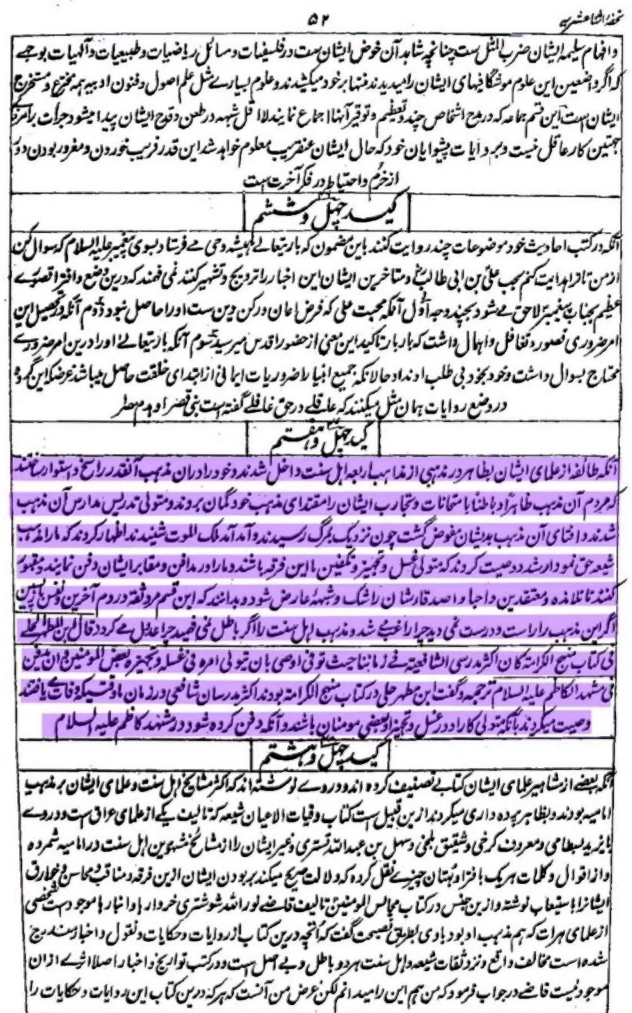 تحفۂ اثنا عشریہ ۵۲
و افهام سلیمه ایشان ضرب المثل ست چنانچه شاهد آن خوض ایشان ست در فلسفیات و مسائل ریاضیات و طبیعیات و آلهیات بوجهے
که اگر واضعین این علوم موشگافیهای ایشان را میدیدند منتها بر خود میکشیدند و علوم بسیارے مثل علم اصول و فنون ادبیه همه مخترع و مستخرج
ایشان است این قسم جماعه که در مدح اشخاص چند و تعظیم و توقیر آنها اجماع نمایند لا اقل شبهه در طعن و قدح ایشان پیدا میشود جرأت بر امرے
چنین کار عاقل نیست و بر روایات پیشوایان خود که حال ایشان عنقریب معلوم خواهد شد این قدر فریب خوردن و مغرور بودن دور
از حزم و احتیاط در فکر آخرت ست
کید چهل و ششم
آنکه در کتب احادیث خود موضوعات چند روایت کنند باین مضمون که باریتعالے همیشه وحی مے فرستاد بسوی پیغمبر علیه السلام که سوال کن
از من تا ترا هدایت کنم بحب علی بن ابی طالب و متاخرین ایشان این اخبار را ترویج و تشهیر کنند نمی فهمند که درین وضع و افترا قصورے
عظیم بجناب پیغمبر لاحق مے شود بچند وجه اول آنکه محبت علی که فرض ایمان و رکن دین ست او را حاصل نبود دوم آنکه در تحصیل این
امر ضروری قصور و تغافل و اهمال داشت که بار بار تاکید این معنی از حضور اقدس میرسید سوم آنکه باریتعالے او را درین امر ضرورے
محتاج بسوال داشت و خود بخود بی طلب او نداد حالانکه جمیع انبیا را ضروریات ایمانی از ابتدای خلقت حاصل میباشد غرضکه این گروه
در وضع روایات همان مثل میکنند که عاقلے در حق غافلے گفته است بنی قصرا و هدم مصرا
کید چهل و هفتم
آنکه طائفه از علمای ایشان بظاهر در مذهبی از مذاهب اربعه اهل سنت داخل شدند و خود را در ان مذهب آنقدر راسخ و استوار ساختند
که مردم آن مذهب ظاهرا و باطنا بامتحانات و تجارب ایشان را مقتدای مذهب خود گمان بردند و متولی تدریس مدارس آن مذهب
شدند و افتای آن مذهب بدیشان مفوض گشت چون نزدیک بمرگ رسیدند و آمد آمد ملک الموت شنیدند اظهار کردند که ما را مذهب
شیعه حق نمودار شد و وصیت کردند که متولی غسل و تجهیز و تکفین ما این فرقه باشند و ما را در مدافن و مقابر ایشان دفن نمایند
کنند تا تلامذه و معتقدین و احبا و اصدقا شان را شک و شبهه عارض شود و بدانند که این قسم در دم آخرین
اگر این مذهب را راست و درست نمی دید چرا راغب مے شد و مذهب اهل سنت را اگر باطل نمی فهمید چرا عدول مے کرد قال ابن المطهر الحلے
فی کتاب منهج الکرامة کان اکثر مدرسی الشافعیة فی زماننا حیث توفی اوصی بان یتولی امره فی غسله و تجهیزه بعض المومنین و ان یدفن
فی مشهد الکاظم علیه السلام ترجمه و گفت ابن مطهر حلی در کتاب منهج الکرامة بودند اکثر مدرسان شافعی در زمان ما وقتیکه وفات یافتند
وصیت میکردند بآنکه متولی کار او در غسل و تجهیز او بعضی مومنان باشند و آنکه دفن کرده شود در مشهد کاظم علیه السلام
کید چهل و هشتم
آنکه بعضے از مشاهیر علمای ایشان کتابے تصنیف کرده اند و در وے نوشته اند که اکثر مشایخ اهل سنت و علمای ایشان بر مذهب
امامیه بودند و بظاهر پرده داری میکردند ازین قبیل ست کتاب وفیات الاعیان شیعه که تالیف یکے از علمای عراق ست و در وے
بایزید بسطامی و معروف کرخی و شقیق بلخی و سهل بن عبد الله تستری و غیر ایشان را از مشائخ مشهورین اهل سنت در امامیه شمرده
و از اقوال و کلمات هر یک بافترا و بهتان چیزے نقل کرده که دلالت صریح میکند بر بودن ایشان ازین فرقه و مناقب و محاسن و خوارق
ایشان را باستیعاب نوشته و ازین جنس در کتاب مجالس المومنین تالیف قاضی نور الله شوشتری خردارها و انبارها موجود ست شخصی
از علمای هرات که هم مذهب او بود باوی بطریق نصیحت گفت که آنچه درین کتاب از روایات و حکایات و نقول و اخبار مندرج
شده است مخالف واقع و نزد ثقات شیعه و اهل سنت هر دو باطل و بے اصل ست و در کتب تواریخ و اخبار اصلا اثرے از ان
موجود نیست قاضی در جواب فرمود که من هم این را میدانم لکن غرض من آنست که هر که درین کتاب این روایات و حکایات را